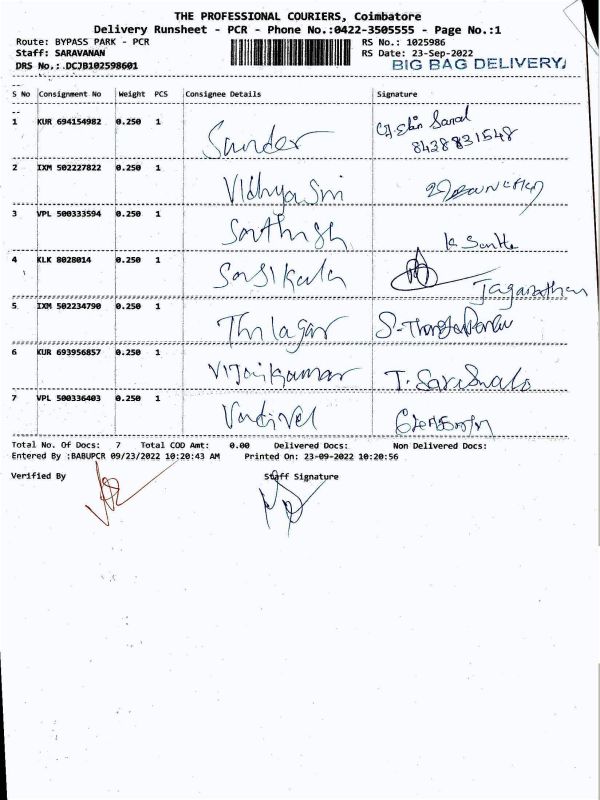 THE PROFESSIONAL COURIERS, Coimbatore
Delivery Runsheet - PCR - Phone No.:0422-3505555 - Page No.:1
Route: BYPASS PARK - PCR RS No.: 1025986
Staff: SARAVANAN RS Date: 23-Sep-2022
DRS No.: DCJB102598601 BIG BAG DELIVERY
S No Consignment No Weight PCS Consignee Details Signature
1 KUR 694154982 0.250 1 Sunder
8438831548
2 IXM 502227822 0.250 1 Vidhya Sri
3 VPL 500333594 0.250 1 Sathish
4 KLK 8028014 0.250 1 Sasikala
5 IXM 502234790 0.250 1 Thilagar
6 KUR 693956857 0.250 1 Vijaikumar
7 VPL 500336403 0.250 1 Vadivel
Total No. Of Docs: 7 Total COD Amt: 0.00 Delivered Docs: Non Delivered Docs:
Entered By :BABUPCR 09/23/2022 10:20:43 AM Printed On: 23-09-2022 10:20:56
Verified By Staff Signature